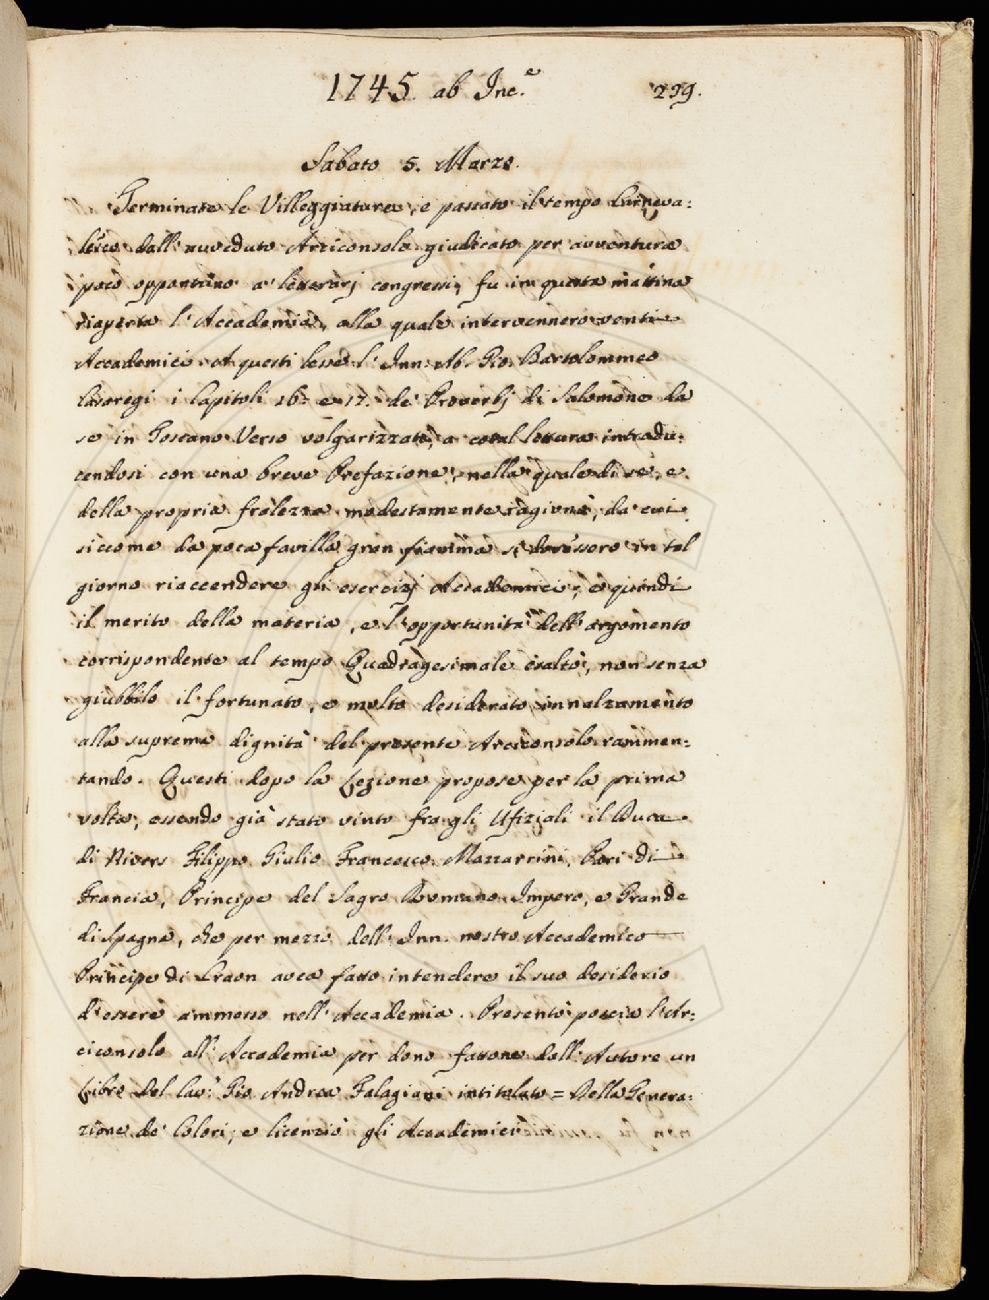 1745. ab Inc.e 239.
Sabato 5. Marzo.
Terminate le Villeggiature, e passato il tempo Carneva:
lesco dall' avveduto Arciconsolo giudicato per avventura
poco opportuno a' letterarj congressi, fu in questa mattina
riaperta l' Accademia, alla quale intervennero venti
Accademici. A questi lesse l' Inn: Ab. Gio. Bartolommeo
Casaregi i Capitoli 16. e 17. de' Proverbj di Salomone da
se in Toscano Verso volgarizzati, a cotal lettura introdu:
cendosi con una breve Prefazione, nella quale di se, e
della propria frolezza modestamente ragionò, da cui
siccome da poca favilla gran fiamma si dovessero in tal
giorno riaccendere gli esercizj Accademici, e quindi
il merito della materia, e l' opportunità dell' argomento
corrispondente al tempo Quadragesimale esaltò, non senza
giubbilo il fortunato, e molto desiderato innalzamento
alla suprema dignità del presente Arciconsolo rammen:
tando. Questi dopo la Lezione propose per la prima
volta, essendo già stato vinto fra gli Ufiziali il Duca
di Nivers Filippo Giulio Francesco Mazzarrini, Pari di
Francia, Principe del Sagro Romano Impero, e Grande
di Spagna, che per mezzo dell' Inn. nostro Accademico
Principe di Craon avea fatto intendere il suo desiderio
d' essere ammesso nell' Accademia. Presentò poscia l' Ar:
ciconsolo all' Accademia per dono fattone dall' Autore un
Libro del Cav.r Gio. Andrea Falagiani intitolato = Della Genera:
zione de' Colori; e licenziò gli Accademici